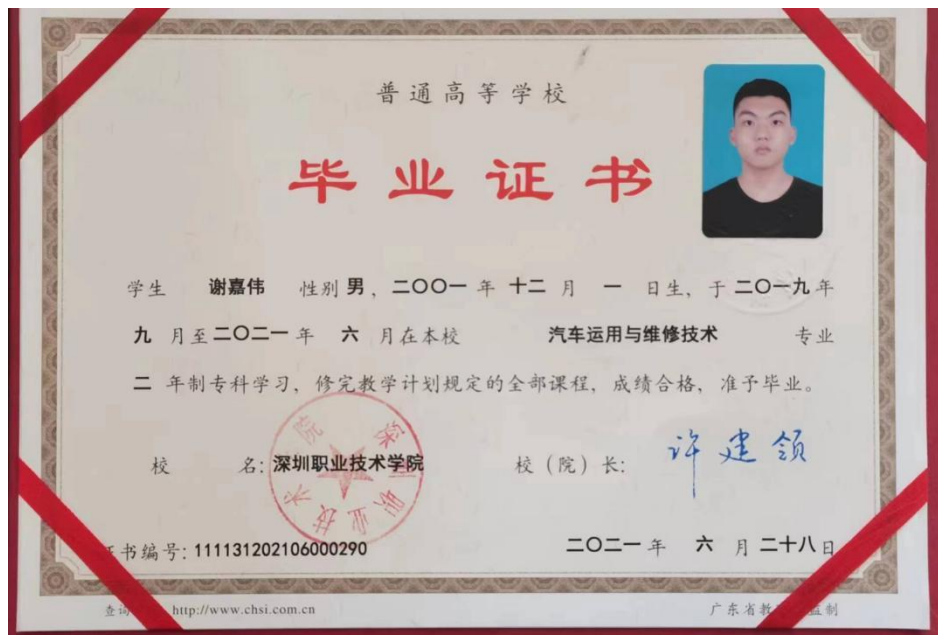 普通高等学校
毕业证书
学生 谢嘉伟 性别 男，二〇〇一 年 十二 月 一 日生，于 二〇一九 年
九 月至 二〇二一 年 六 月在本校 汽车运用与维修技术 专业
二 年制专科学习，修完教学计划规定的全部课程，成绩合格，准予毕业。
深圳职业技术学院
校 名：深圳职业技术学院 校（院）长：许建领
书编号：111131202106000290 二〇二一 年 六 月 二十八 日
查询 http://www.chsi.com.cn 广东省教 监制